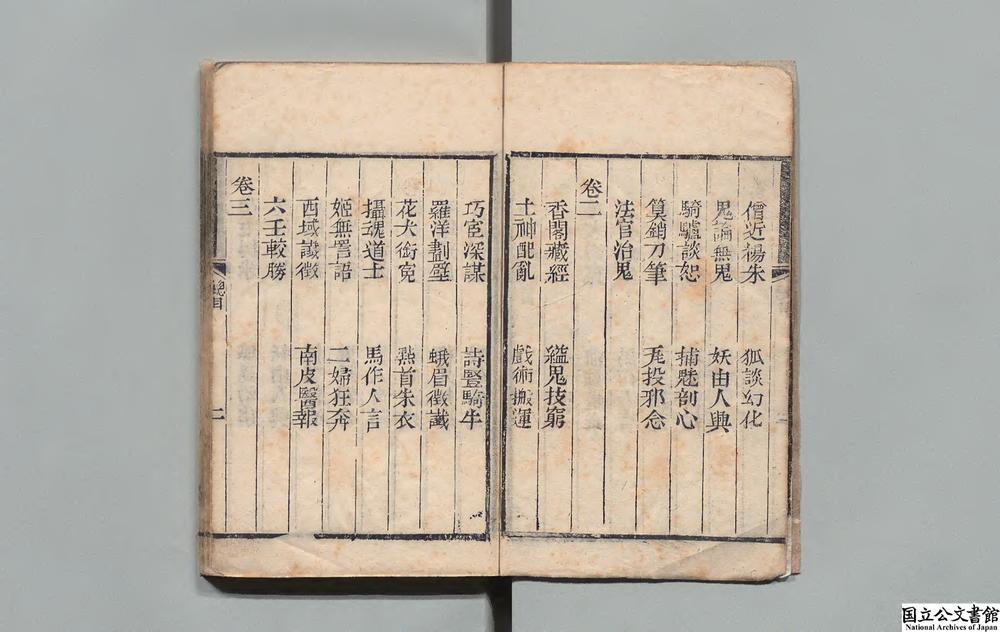 僧近楊朱　狐談幻化
鬼論無鬼　妖由人興
騎驢談恕　捕魅剖心
筭銷刀筆　瓦投邪念
法官治鬼
卷二
香閣藏經　縊鬼技窮
土神配亂　戲術搬運
巧宦深謀　詩豎騎牛
羅洋劃壁　蛾眉徵讖
花犬銜寃　㸃首朱衣
攝魂道士　馬作人言
姬無詈語　二婦狂奔
西域讖徵　南皮醫報
六壬較勝
卷三
總目
二
国立公文書館
National Archives of Japan